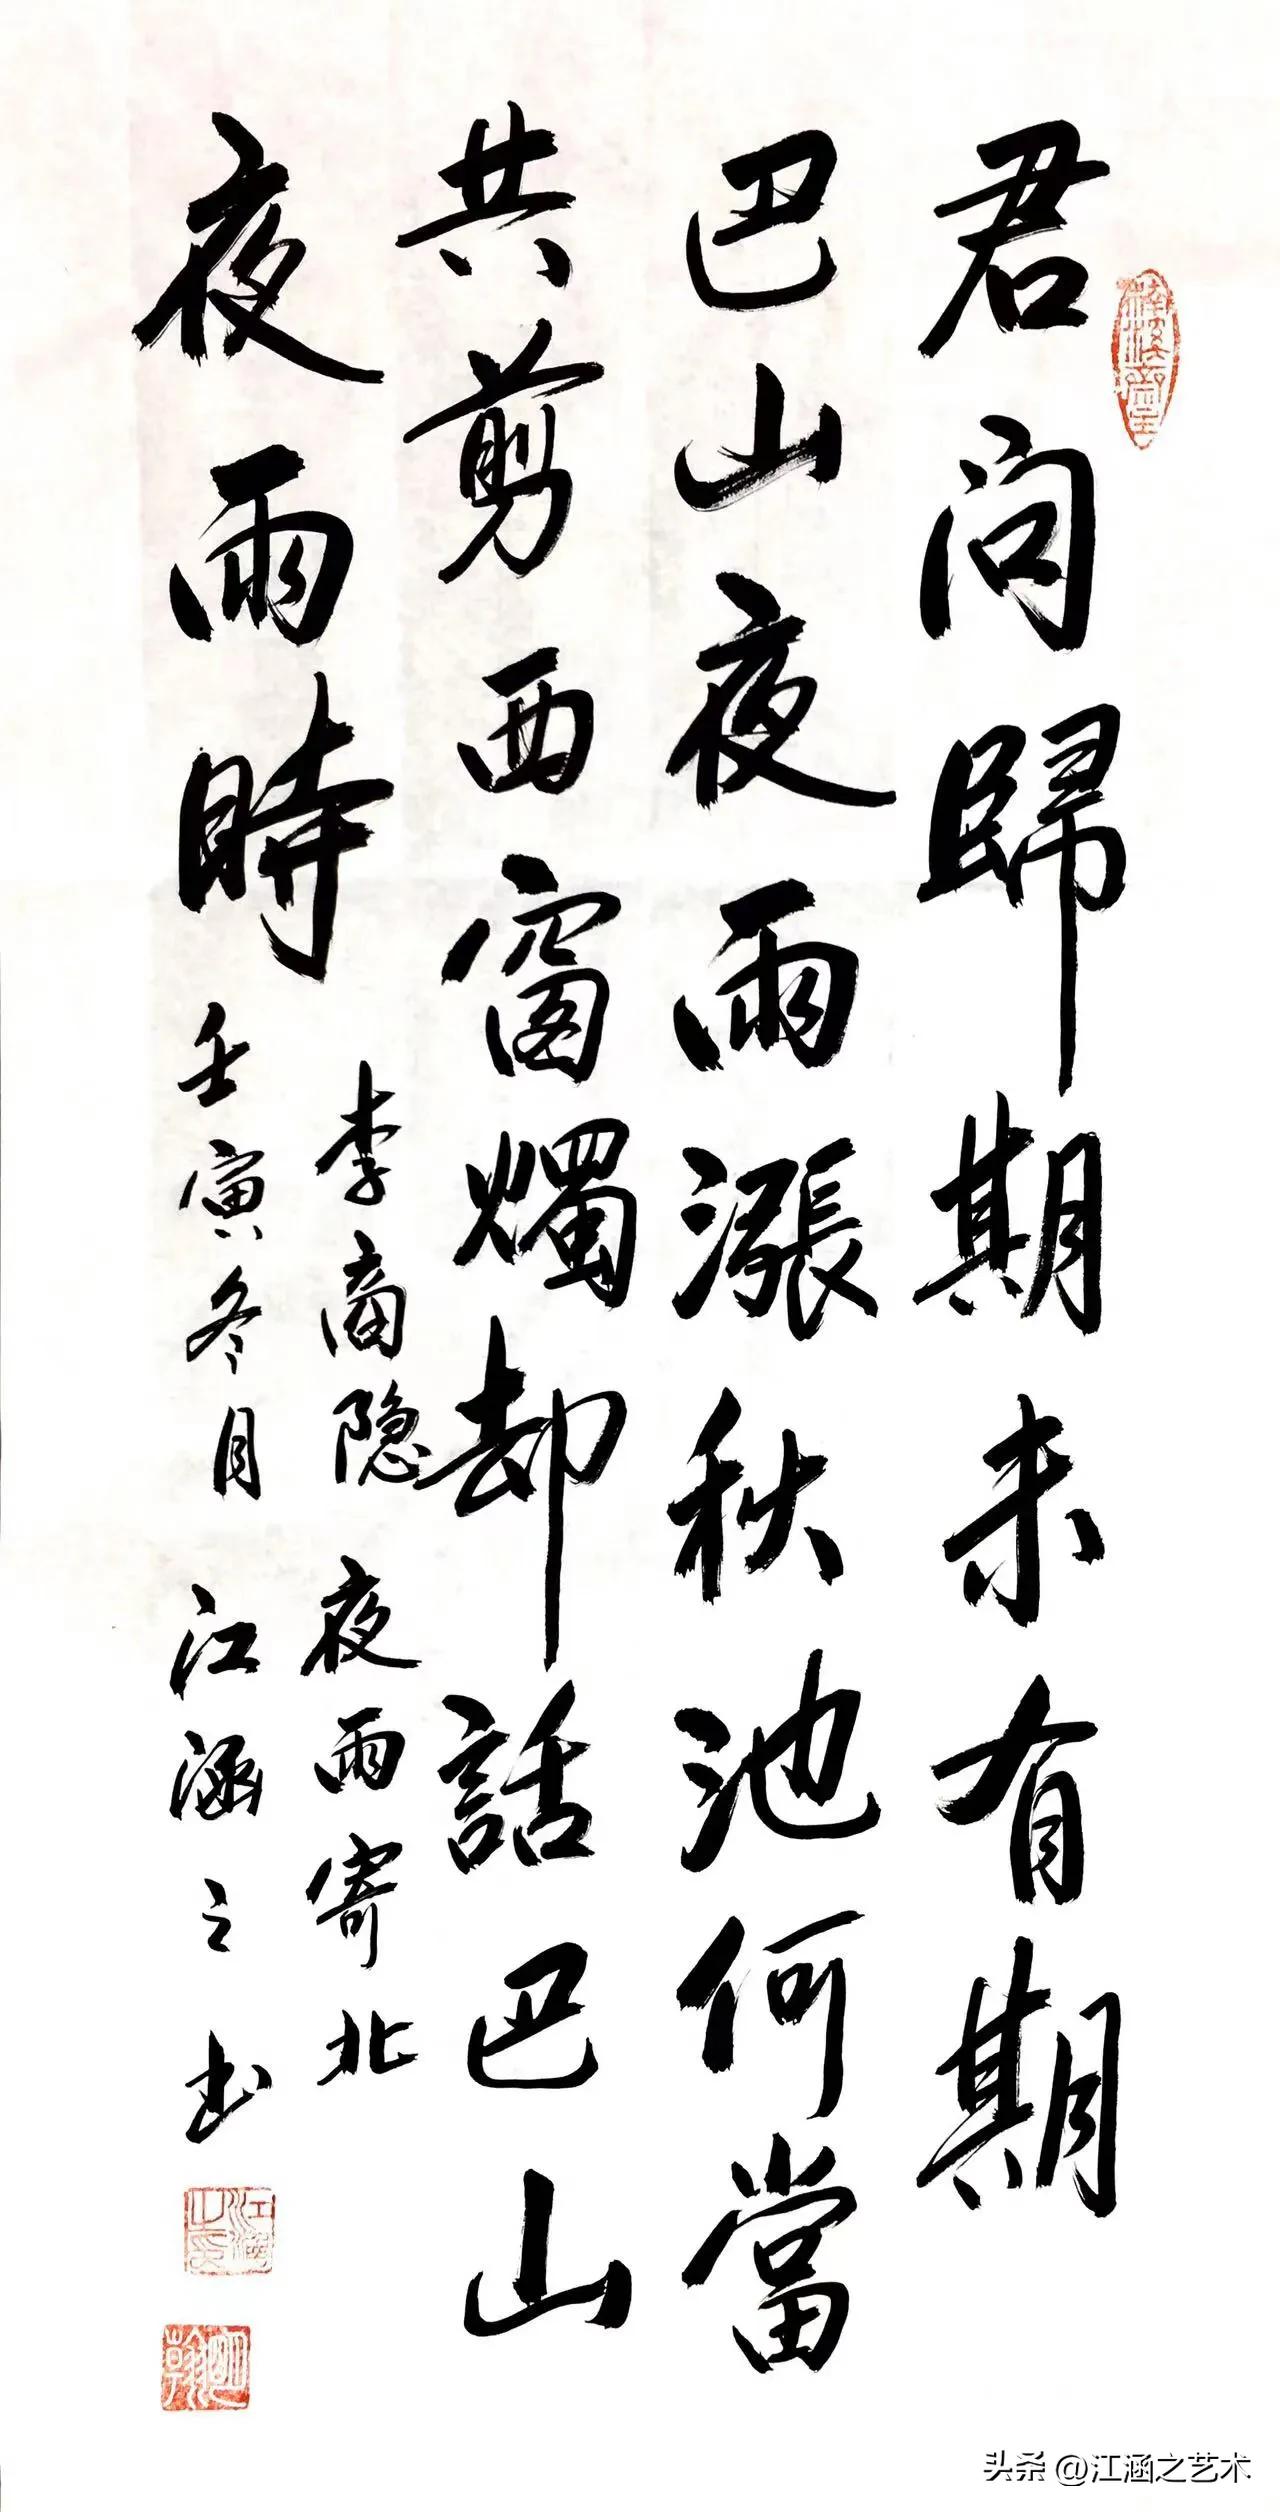 君问歸期未有期
巴山夜雨漲秋池何當
共剪西窗燭却話巴山
夜雨時
李商隐 夜雨寄北
壬寅冬月 江涵之书
江涵之印
头条 @江涵之艺术